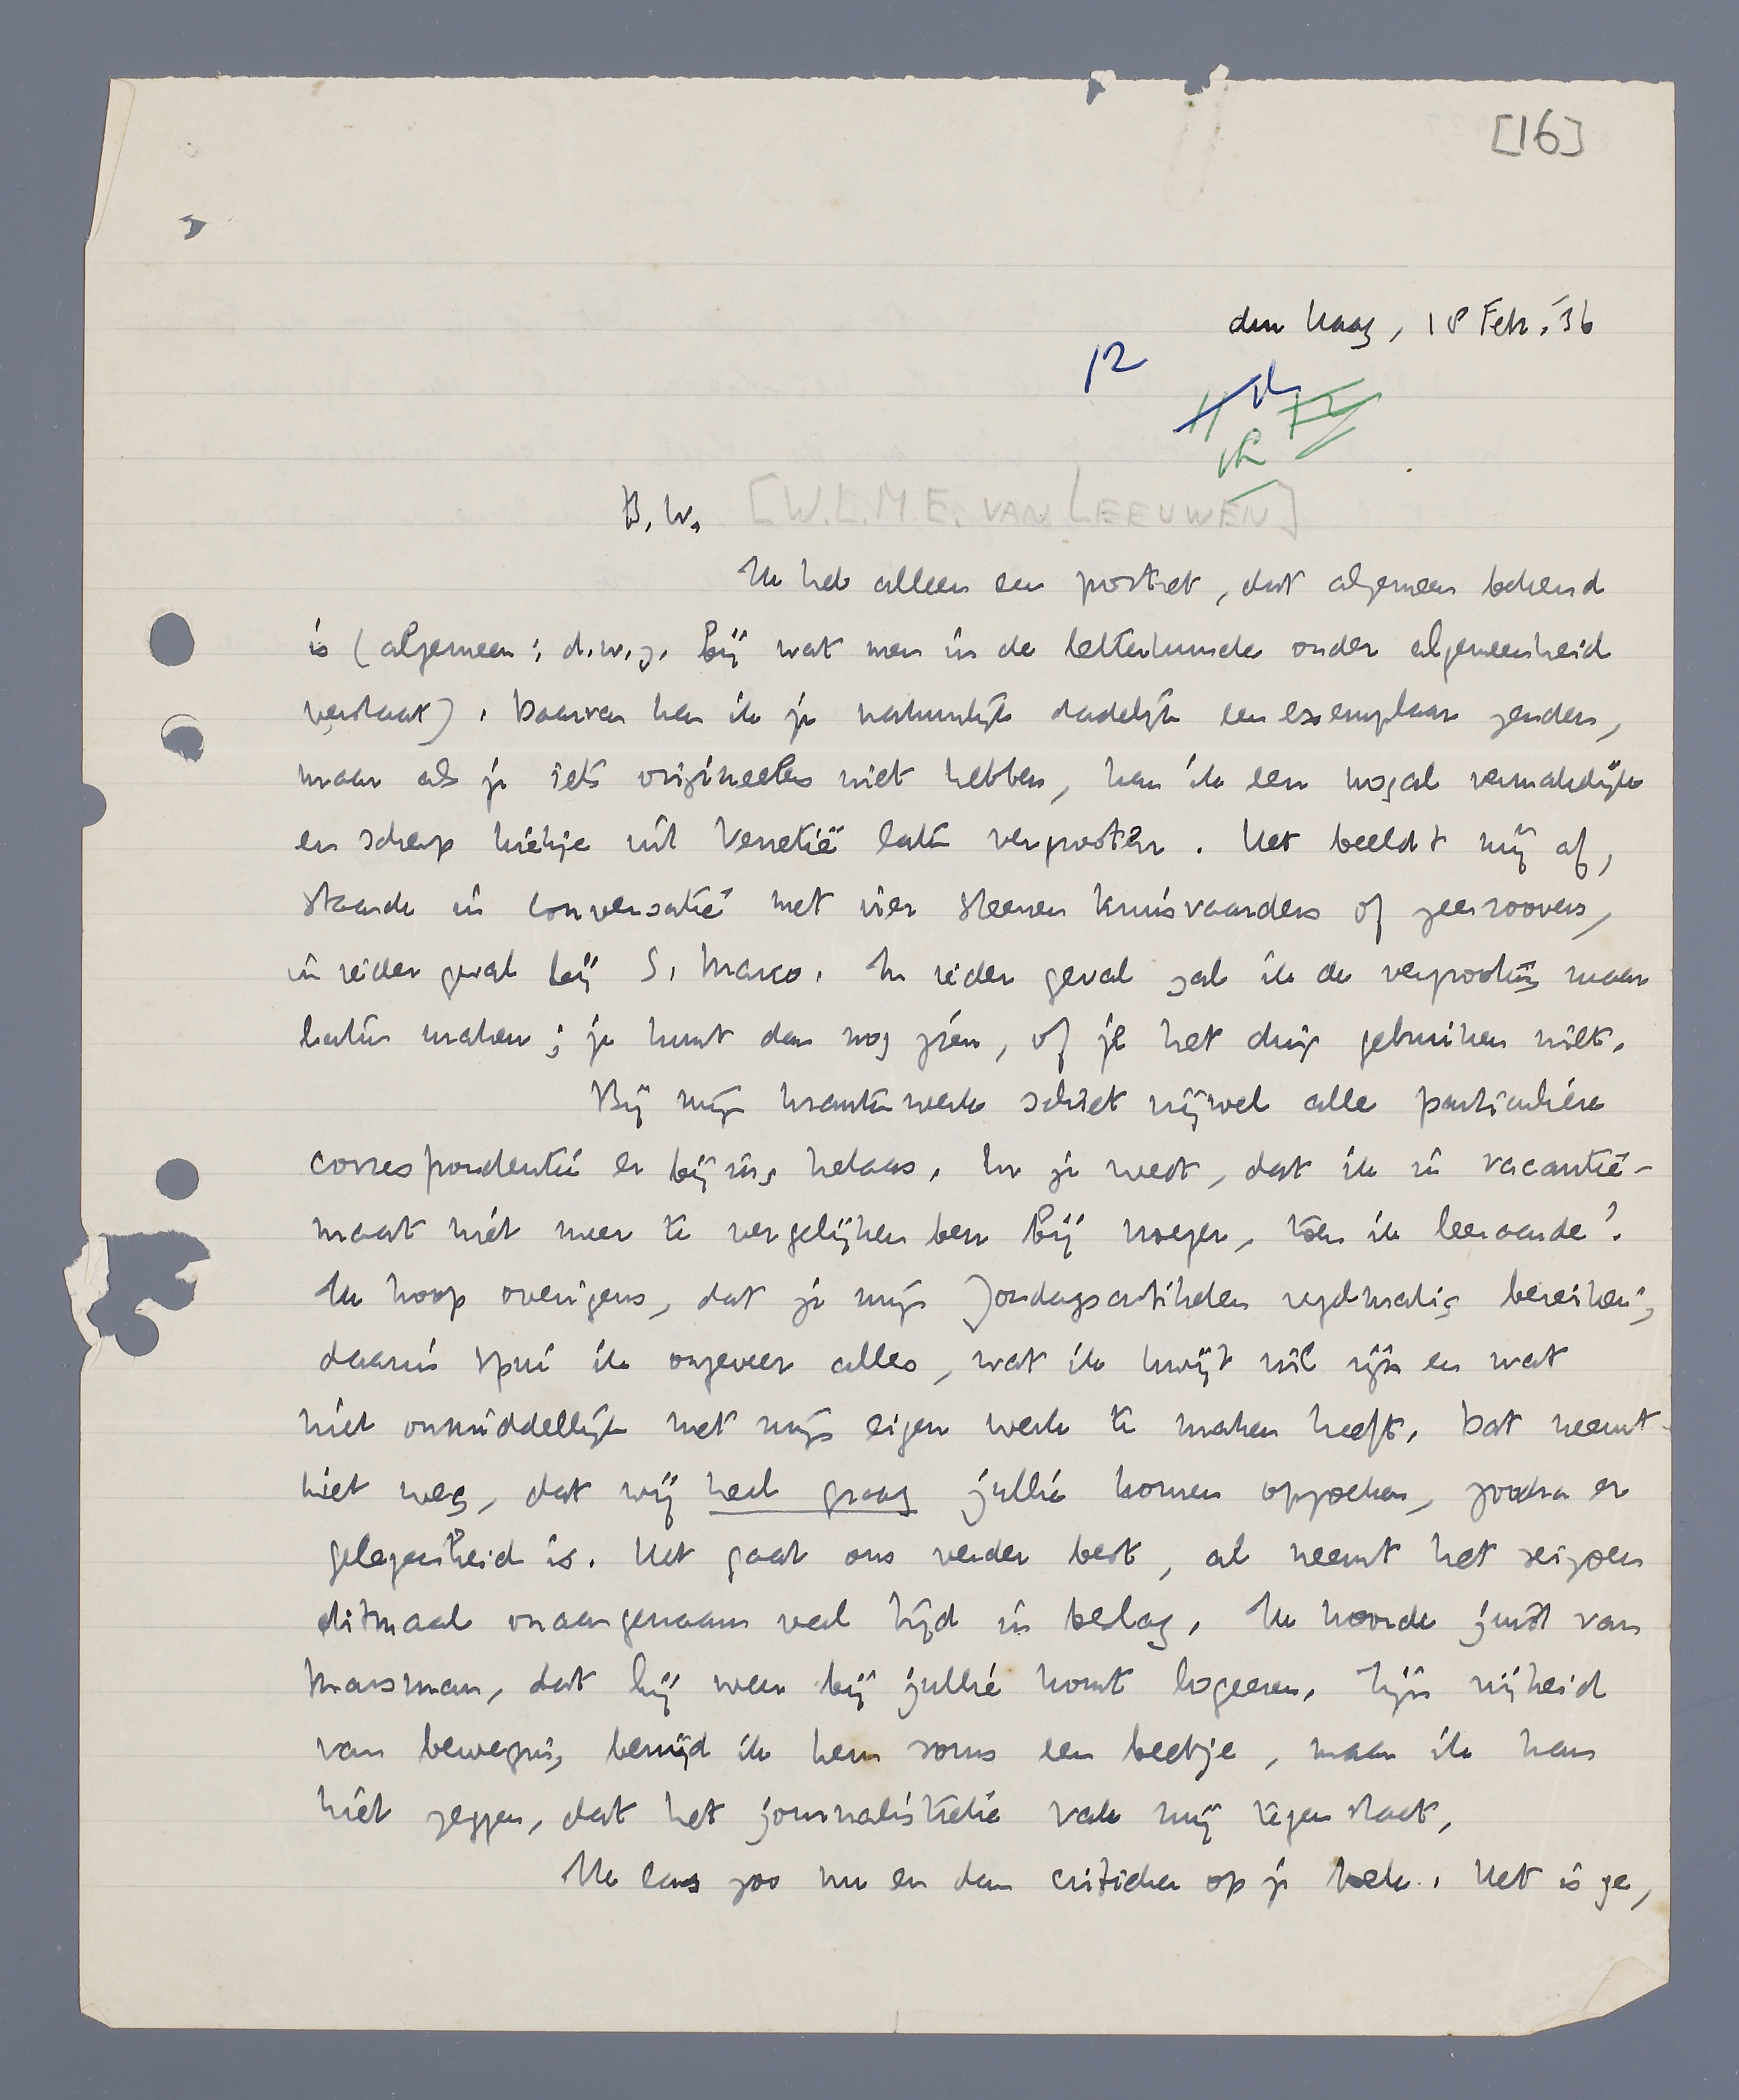 [16]
den Haag, 18 Febr. '36
12
B.W. [W.L.M.E. VAN LEEUWEN]
Ik heb alleen een portret, dat algemeen bekend
is (algemeen: d.w.z. bij wat men in de letterkunde onder algemeenheid
verstaat). Daarvan kan ik je natuurlijk dadelijk een exemplaar zenden,
maar als je iets origineelers wilt hebben, kan ik een nogal vermakelijk
en scherp kiekje uit Venetië laten vergrooten. Het beeldt mij af,
staande in conversatie met vier steenen kruisvaarders of zeeroovers,
in ieder geval bij S. Marco. In ieder geval zal ik de vergrooting maar
laten maken; je kunt dan nog zien, of je het ding gebruiken wilt.
Bij mijn krantenwerk schiet vrijwel alle particuliere
correspondentie er bij in, helaas. En je weet, dat ik in vacantie-
maat niet meer te vergelijken ben bij vroeger, toen ik leeraarde!
Ik hoop overigens, dat je mijn Zondagsartikelen regelmatig bereiken;
daarin spui ik ongeveer alles, wat ik kwijt wil zijn en wat
niet onmiddellijk met mijn eigen werk te maken heeft. Dat neemt
niet weg, dat wij heel graag jullie komen opzoeken, zoodra er
gelegenheid is. Het gaat ons verder best, al neemt het seizoen
ditmaal onaangenaam veel tijd in beslag. Ik hoorde juist van
Marsman, dat hij weer bij jullie komt logeeren. Zijn vrijheid
van beweging benijd ik hem soms een beetje, maar ik kan
niet zeggen, dat het journalistieke vak mij tegenstaat.
Ik lees zoo nu en dan critieken op je boek. Het is ge,